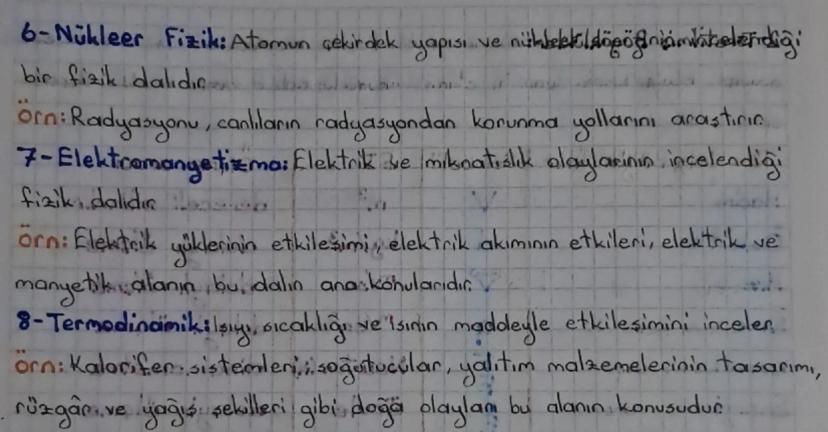 6-Nükleer Fizik: Atomun çekirdek yapısı ve incelendiği
bir fizik dalıdır.
Örn: Radyasyonu, canlıların radyasyondan korunma yollarını araştırır.
7-Elektromanyetizma: Elektrik ve mıknatıslık olaylarının incelendiği
fizik dalıdır
Örn: Elektrik yüklerinin etkileşimi, elektrik akımının etkileri, elektrik ve
manyetik alanın bu dalın ana konularıdır.
8-Termodinamik: Isıyı, sıcaklığı ve ısının maddeyle etkileşimini inceler.
Örn: Kalorifer sistemleri, soğutucular, yalıtım malzemelerinin tasarımı,
rüzgâr ve yağış şekilleri gibi doğa olayları bu alanın konusudur.